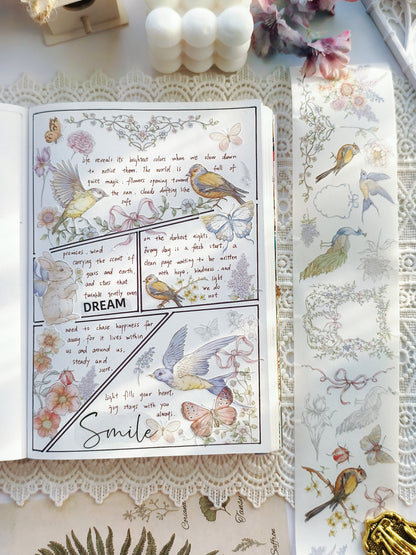 Life reveals its brightest colors when we slow down
to notice them. The world is full of
quiet magic, flowers opening toward
the sun, clouds drifting like
soft
promises, wind
carrying the scent of
grass and earth,
and stars that
twinkle gently even
DREAM
on the darkest nights.
Every day is a fresh start, a
clean page waiting to be written
with hope, kindness, and
light
we do
not
need to chase happiness far
away, for it lives within
us and around us,
steady and
sure.
Light fills your heart,
joy stays with you
always.
Smile
Saffron